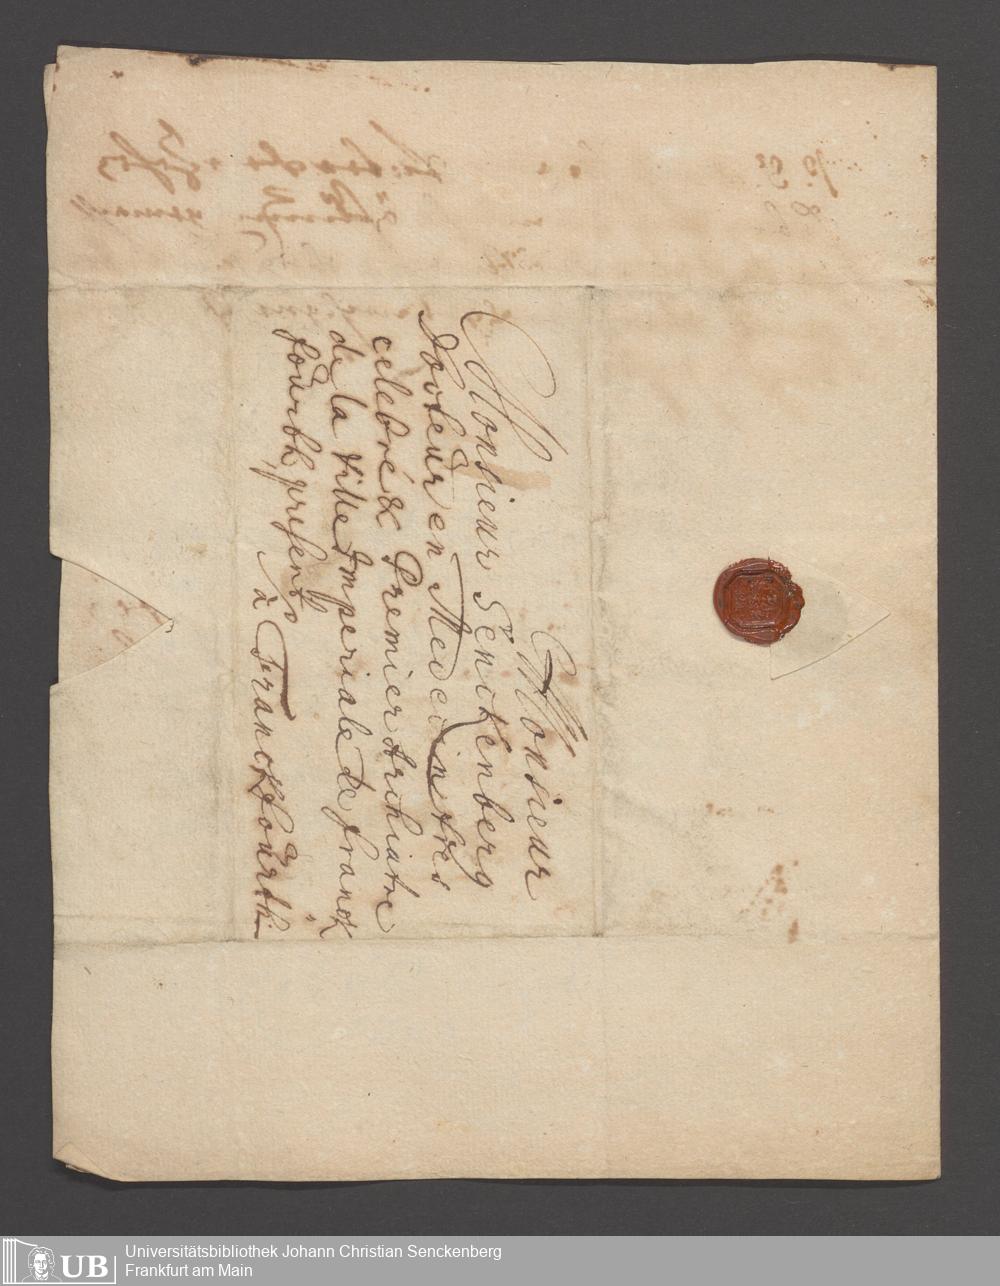 Monsieur
Monsieur Senckenberg
Docteur en Medecine tres
celebre & Premier Archiatre
de la ville Imperiale de franck
fourth, present
à Franckfourth.
UB
Universitätsbibliothek Johann Christian Senckenberg
Frankfurt am Main